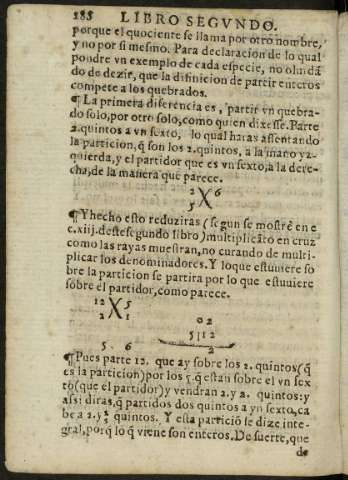 288 LIBRO SEGVNDO.
porque el quociente se llama por otro nombre,
y no por si mesmo. Para declaracion de lo qual
pondre vn exemplo de cada especie, no oluidã
do de dezir, que la difinicion de partir enteros
compete a los quebrados.
¶ La primera diferencia es, partir vn quebra-
do solo, por otro solo, como quien dixesse. Parte
2. quintos a vn sexto, lo qual haras assentando
la particion, q̃ son los 2. quintos, a la mano yz-
quierda, y el partidor que es vn sexto, a la dere-
cha, de la manera que parece.
2 X 6
5
¶ Y hecho esto reduziras (segun se mostrè en e
c.xiij. deste segundo libro) multiplicãto en cruz
como las rayas muestran, no curando de multi-
plicar los denominadores. Y lo que estuuiere so
bre la particion se partira por lo que estuuiere
sobre el partidor, como parece.
12 X 5
2 1
5. 6
0 2
5 | 12
2
¶ Pues parte 12. que ay sobre los 2. quintos (q̃
es la particion) por los 5. q̃ estan sobre el vn sex
to (que el partidor) y vendran 2. y 2. quintos: y
assi diras, q̃ partidos dos quintos a vn sexto, ca
be a 2. y 2/5 quintos. Y esta particiõ se dize inte-
gral, porq̃ lo q̃ viene son enteros. De suerte, que
de